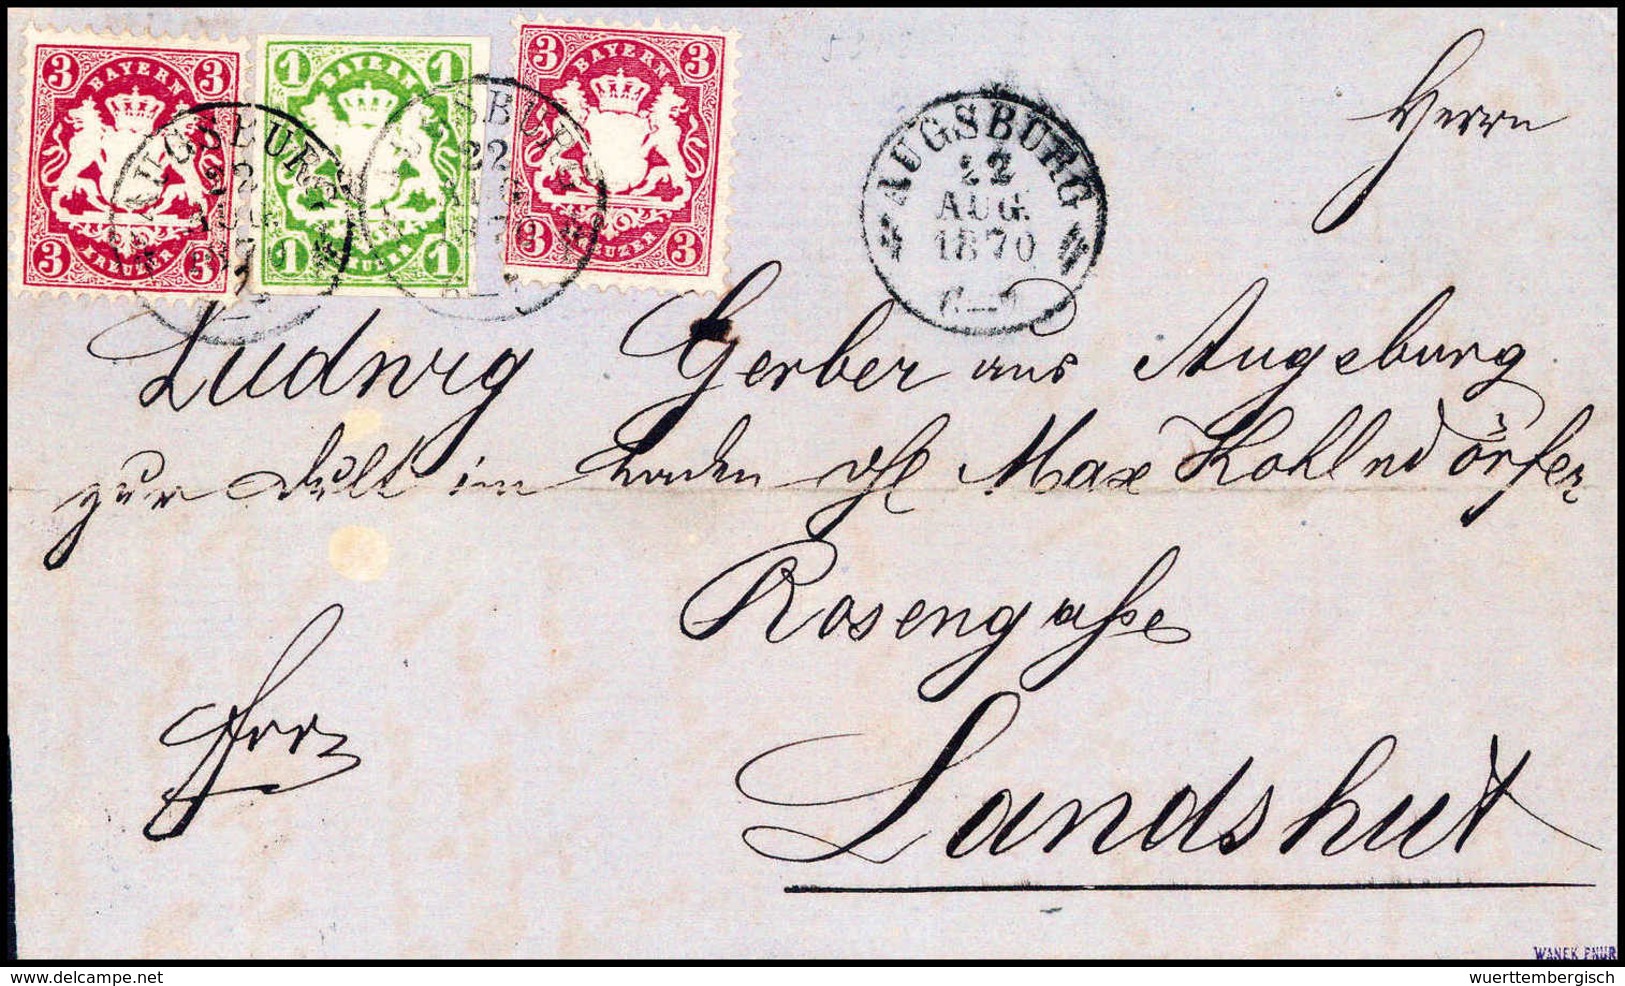 3 BAYERN 3
3 KREUZER 3
1 BAYERN 1
1 KREUZER 1
3 BAYERN 3
3 KREUZER 3
AUGSBURG
22
AUG
AUGSBURG
22
AUG
AUGSBURG
22
AUG.
1870
Herrn
Ludwig Gerber aus Augsburg
zur Dult im Laden Max Kohlndörfer
Rosengaße
Landshut
delcampe.net
wuerttembergisch